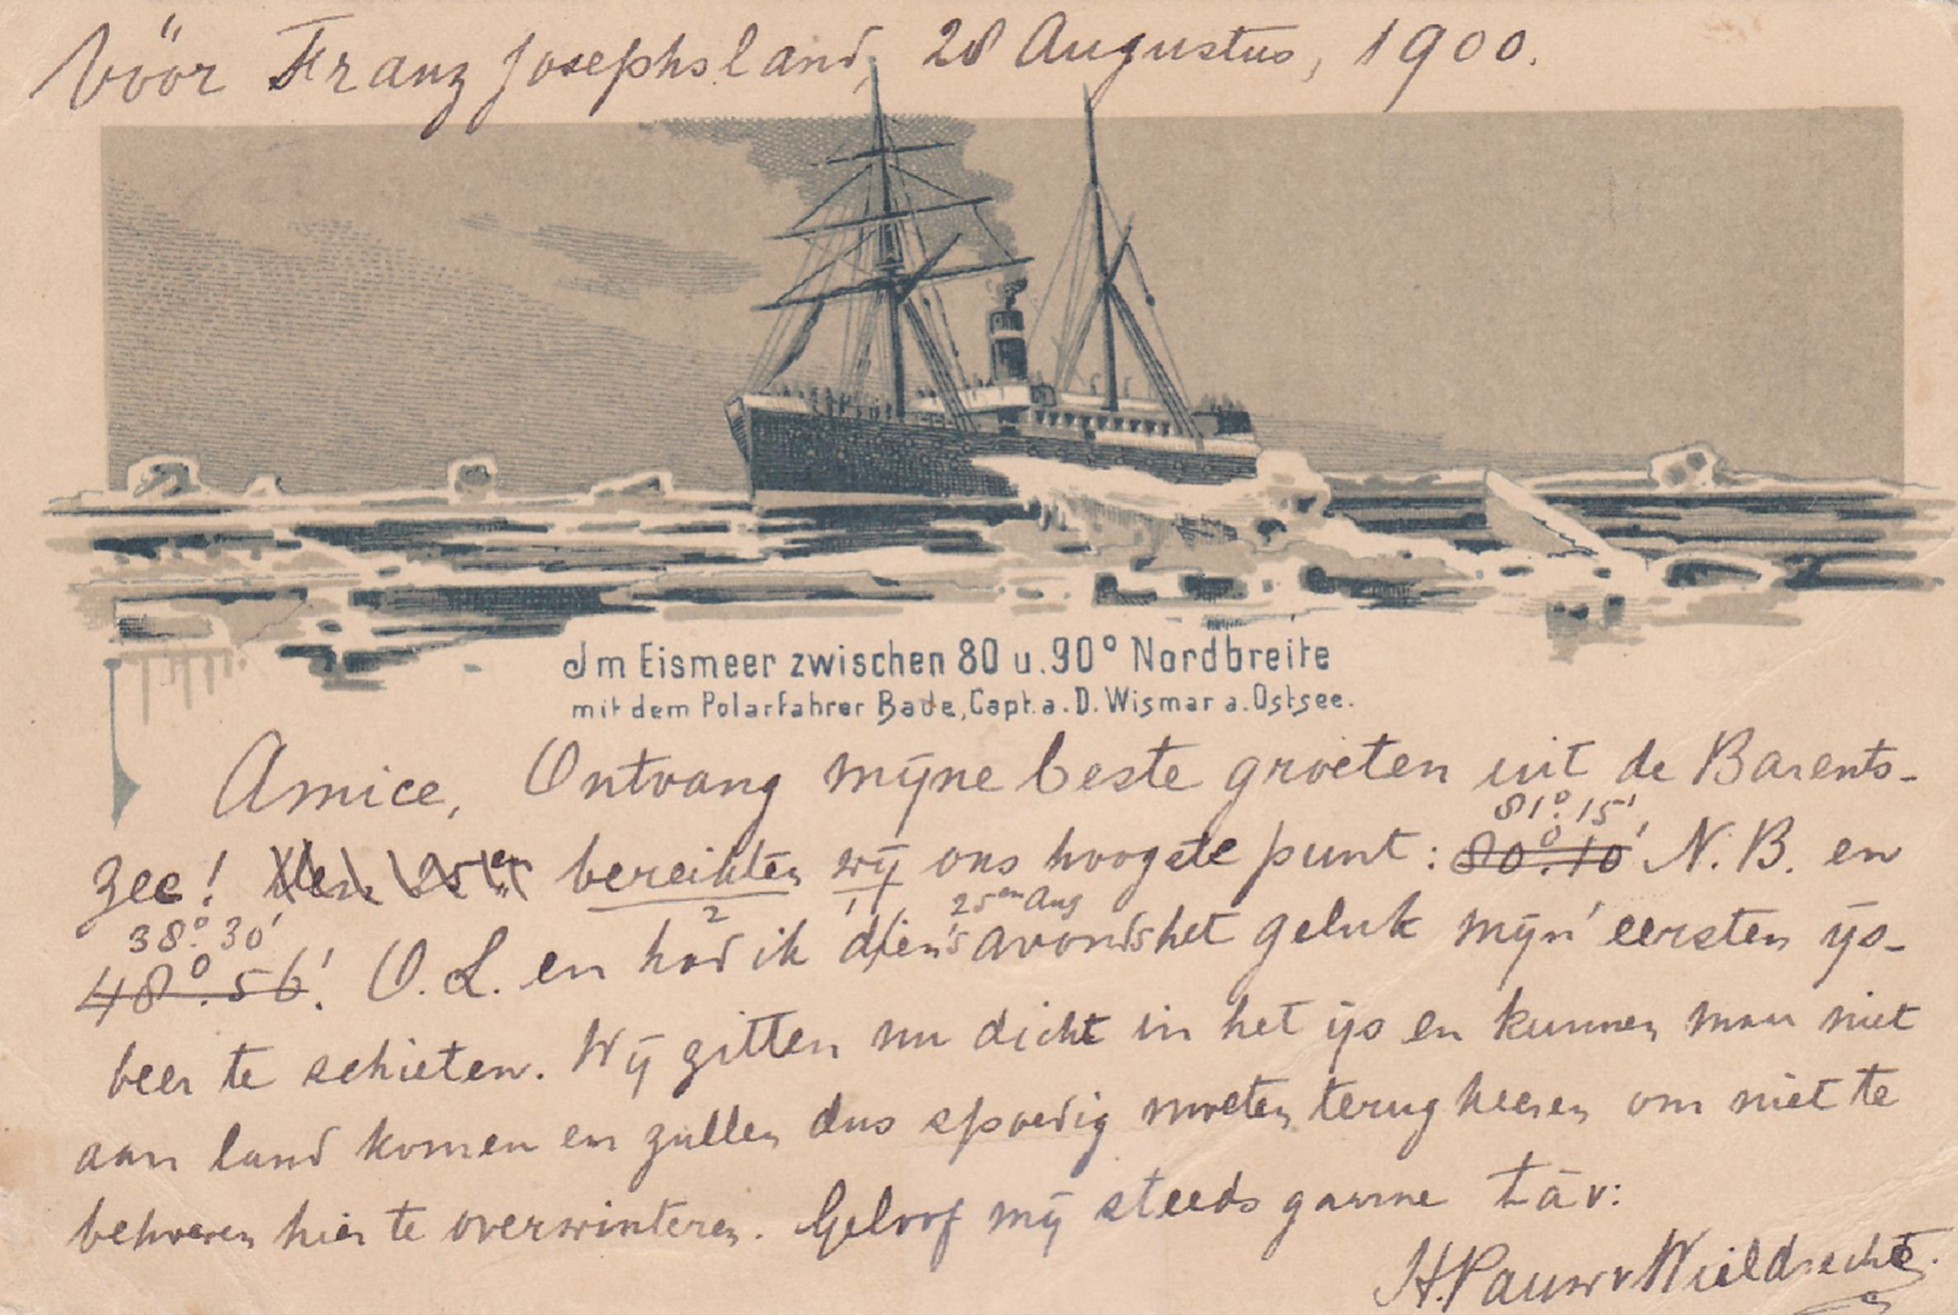 Vöör Franz Josephsland, 28 Augustus, 1900.
Im Eismeer zwischen 80 u. 90° Nordbreite
mit dem Polarfahrer Bade, Capt. a. D. Wismar a. Ostsee.
Amice, Ontvang mijne beste groeten uit de Barents-
81°.15'
zee! Den 25en bereikten wij ons hoogste punt: 80°.10' N.B. en
38°.30' 2 1 25en Aug
48°.56'! O.L. en had ik dien's avonds het geluk mijn' eersten ijs-
beer te schieten. Wij zitten nu dicht in het ijs en kunnen maar niet
aan land komen en zullen dus spoedig moeten terugkeeren om niet te
behoeven hier te overwinteren. Geloof mij steeds gaarne t à v:
H. Pauw v Wieldrecht.